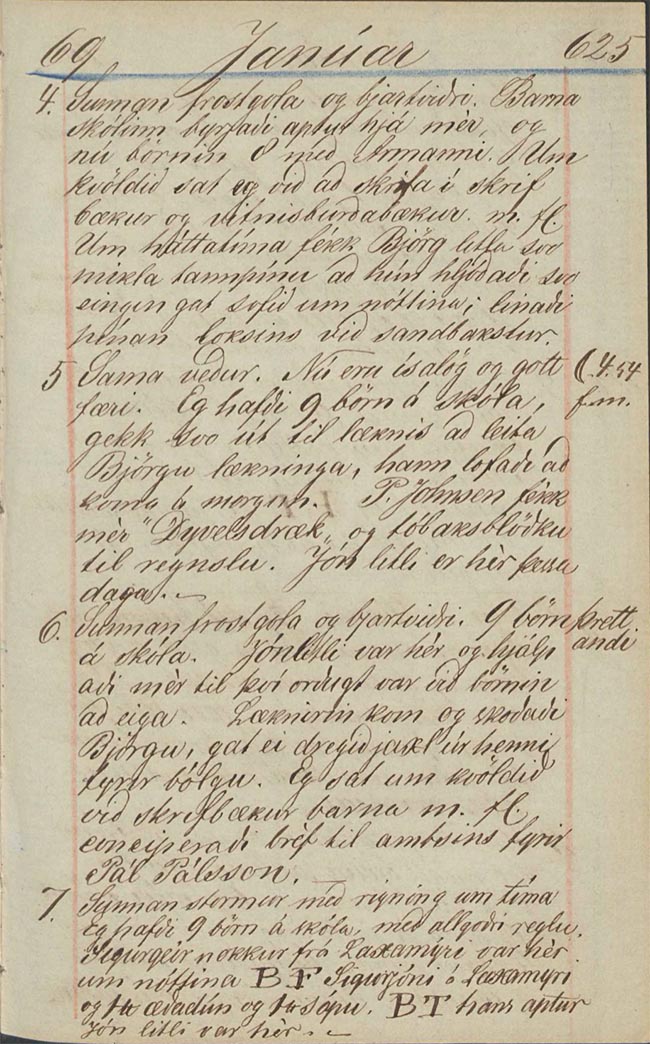 69 Janúar 625
4. Sunnan frostgola og bjartviðri. Barna
skólinn byrjaði aptur hjá mèr, og
nú börnin 8 með Ármanni. Um
kvöldið sat eg við að skrifa í skrif
bækur og vitnisburðabækur. m. fl.
Um háttatíma fékk Björg litla svo
mikla tannpínu að hún hljóðaði svo
eingin gat sofið um nóttina; linaði
pínan loksins við sandbakstur.
5 Sama veður. Nú eru ísalög og gott
færi. Eg hafði 9 börn á skóla,
gekk svo út til læknis að leita
Björgu lækninga, hann lofaði að
koma á morgun. P. Johnsen fékk
mèr "Dyvelsdræk" og tóbaksblöðku
til reynslu. Jón litli er hèr þessa
daga. -
( 4.54
f.m.
6. Sunnan frostgola og bjartviðri. 9 börn
á skóla. Jón litli var hér og hjálp
aði mèr til því örðugt var við börnin
að eiga. Læknirin kom og skoðaði
Björgu, gat ei dregið jaxl úr henni
fyrir bólgu. Eg sat um kvöldið
við skrifbækur barna m. fl.
conciperaði bréf til amtsins fyrir
Pál Pálsson. -
Þrett
andi
7. Sunnan stormur með rigning um tíma
Eg hafði 9 börn á skóla, með allgóðri reglu.
Sigurgeir nokkur frá Laxamýri var hèr
um nóttina BF Sigurjóni á Laxamýri
og 1 æðadún og 1 sápu. BT hans aptur
Jón litli var hèr. -